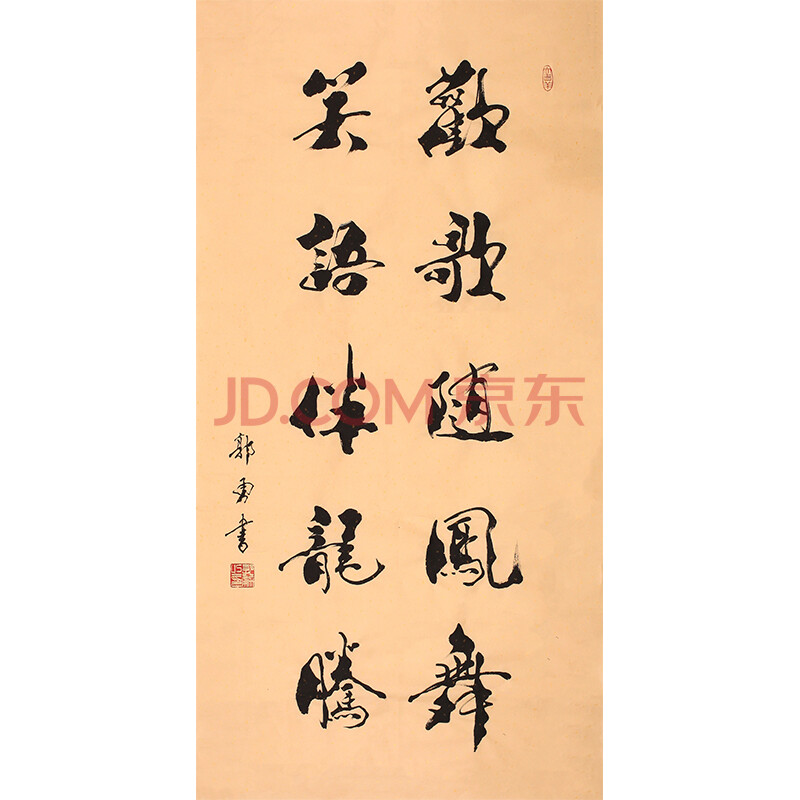 歡歌隨鳳舞
笑語伴龍騰
郭勇書
JD.COM京东